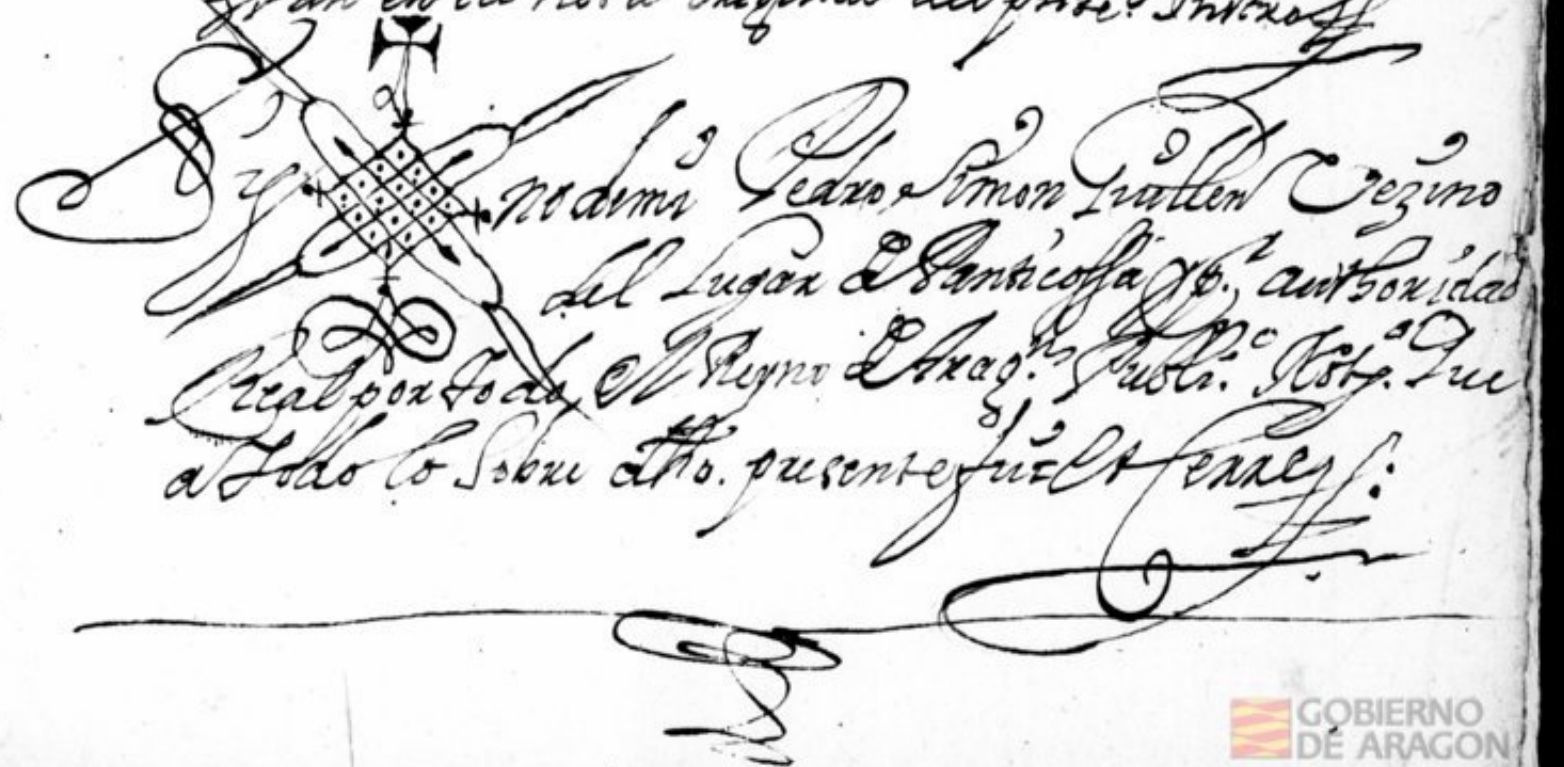 en la nota original del pnte.
Sig no de mi Pedro Simon Guillen Vezino
del Lugar de Panticossa y por authoridad
Real por todo el Reyno de Arag.n Publi.co Not.o Que
a todo lo Sobre dho. presente fui et Cerre
GOBIERNO
DE ARAGON